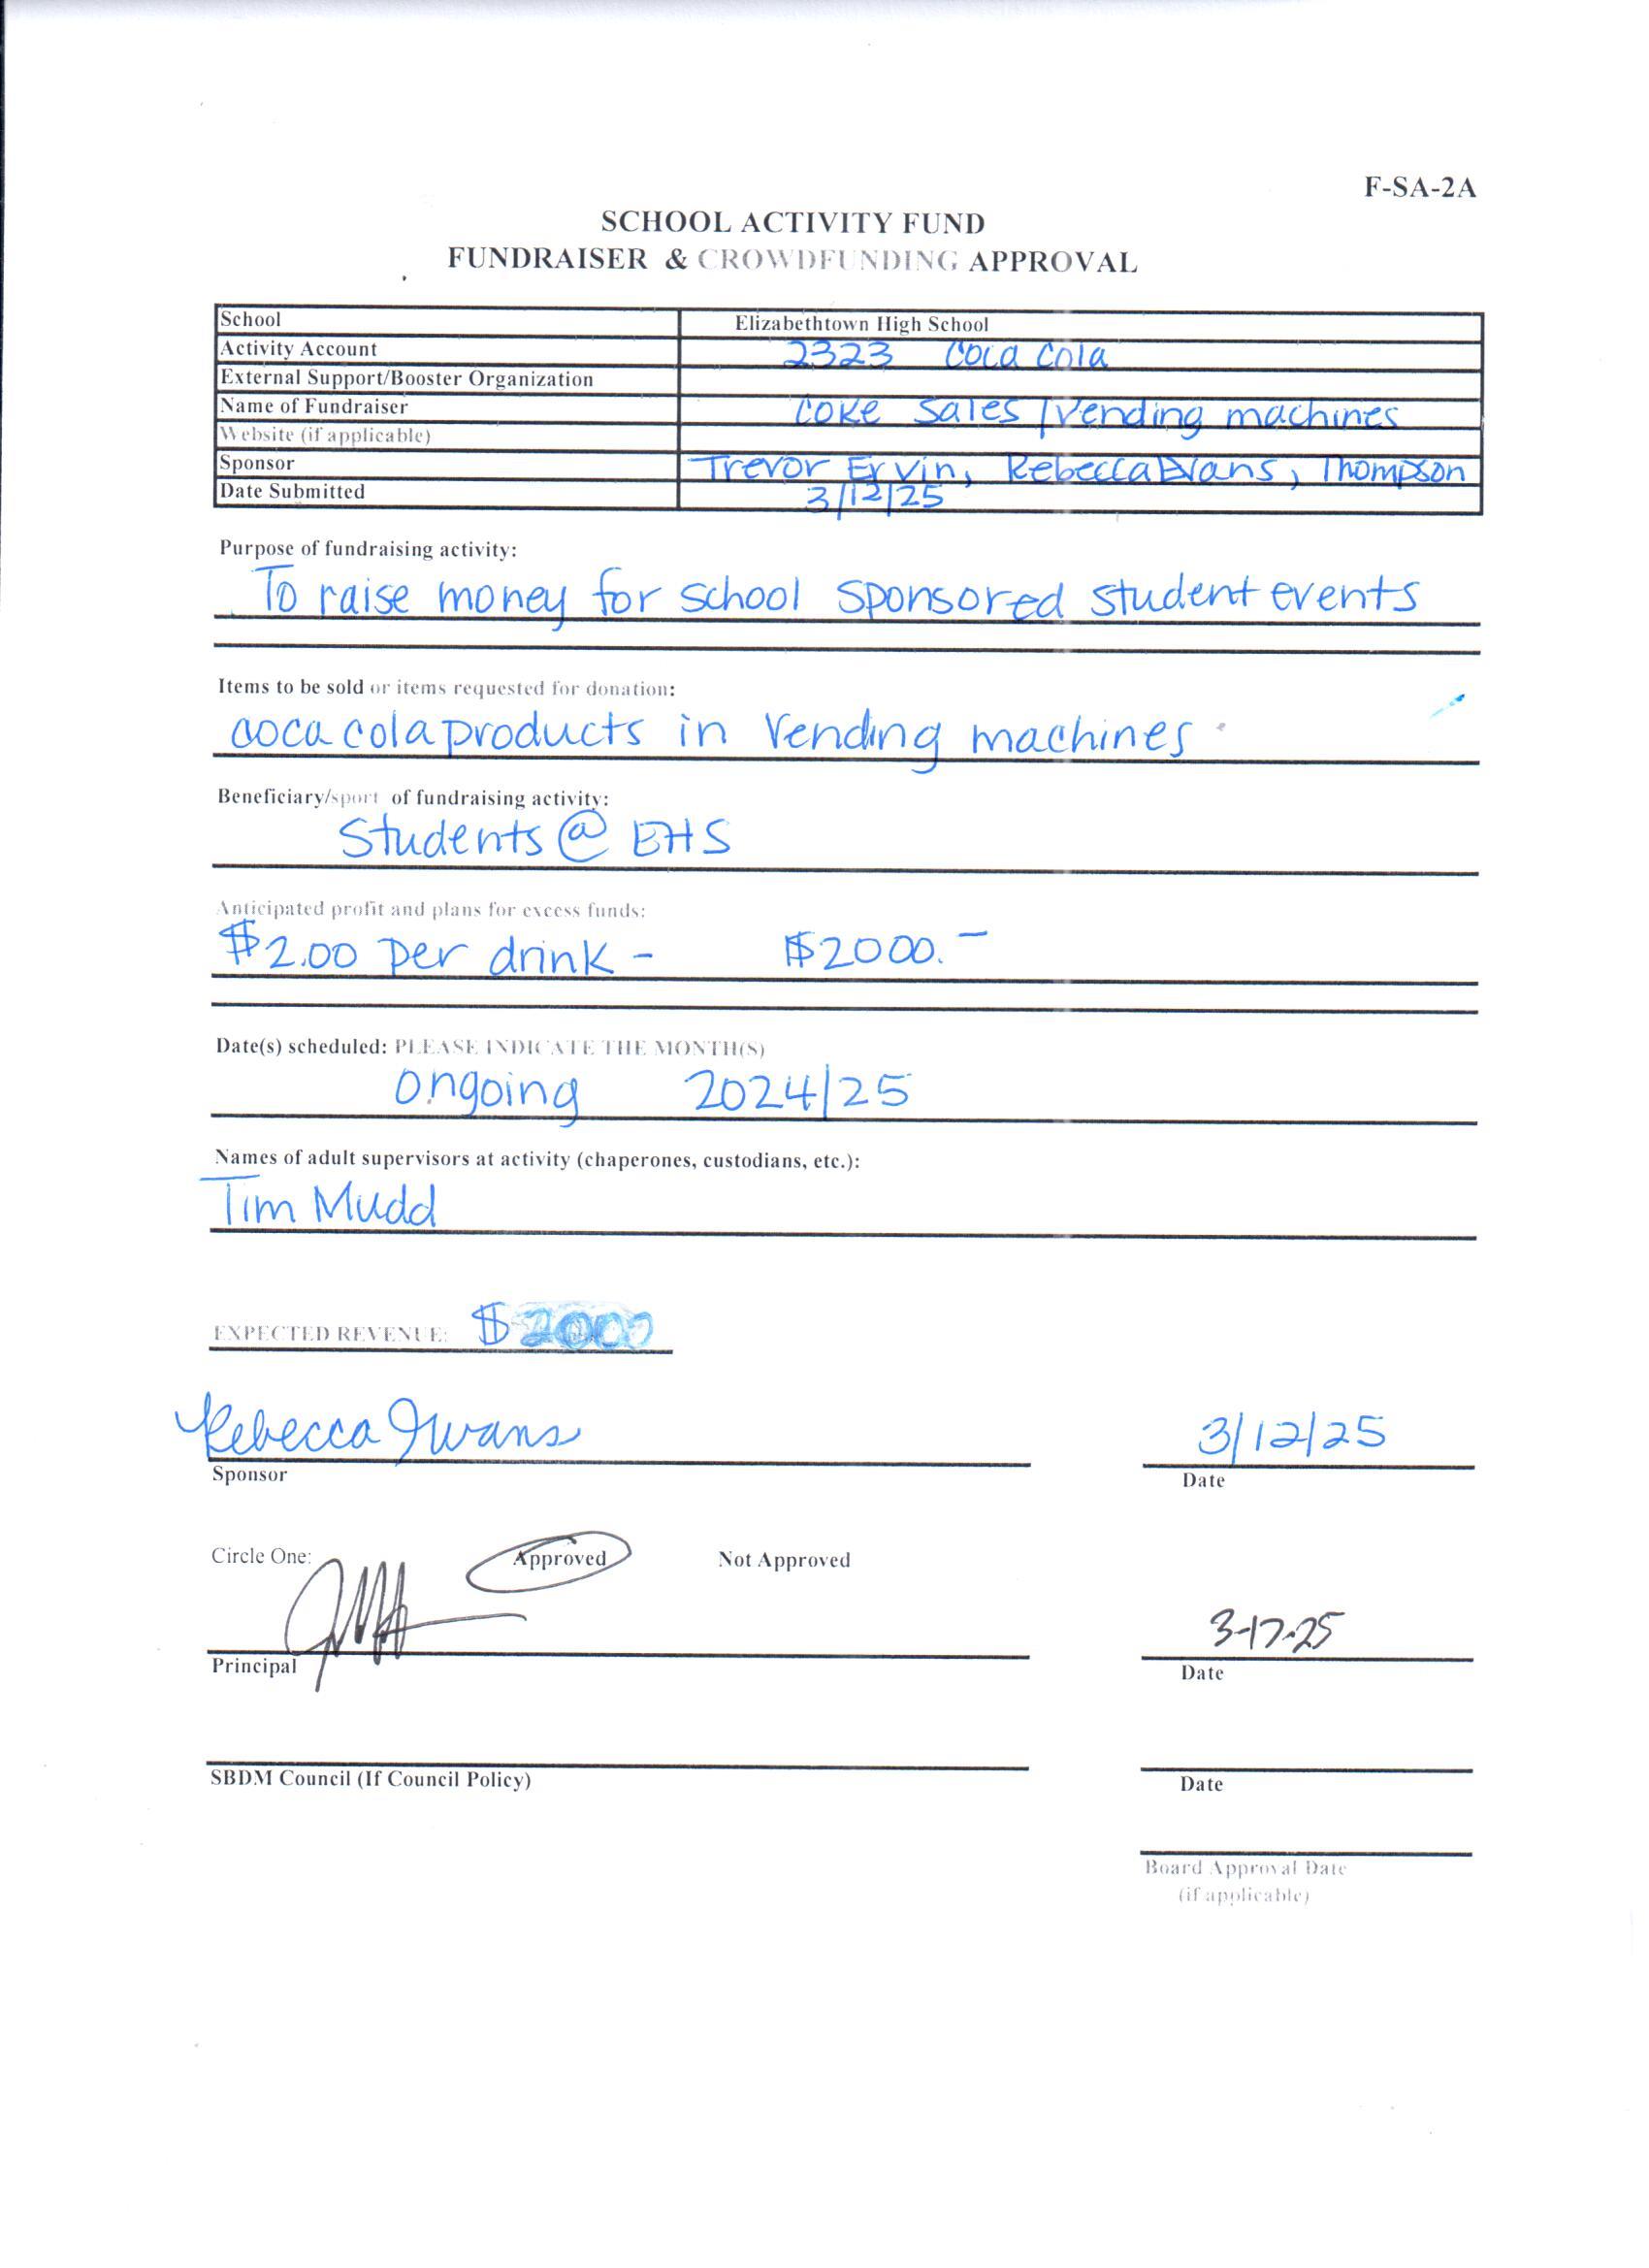 F-SA-2A
SCHOOL ACTIVITY FUND
FUNDRAISER & CROWDFUNDING APPROVAL
School Elizabethtown High School
Activity Account 2323 Coca Cola
External Support/Booster Organization
Name of Fundraiser Coke Sales/Vending machines
Website (if applicable)
Sponsor Trevor Ervin, Rebecca Evans, Thompson
Date Submitted 3/12/25
Purpose of fundraising activity:
To raise money for school sponsored student events
Items to be sold or items requested for donation:
coca cola products in vending machines
Beneficiary/sport of fundraising activity:
Students @ EHS
Anticipated profit and plans for excess funds:
$2.00 per drink - $2000.-
Date(s) scheduled: PLEASE INDICATE THE MONTH(S)
ongoing 2024/25
Names of adult supervisors at activity (chaperones, custodians, etc.):
Tim Mudd
EXPECTED REVENUE: $2000
Rebecca 3/12/25
Sponsor Date
Circle One: Approved Not Approved
3-17-25
Principal Date
SBDM Council (If Council Policy) Date
Board Approval Date
(if applicable)